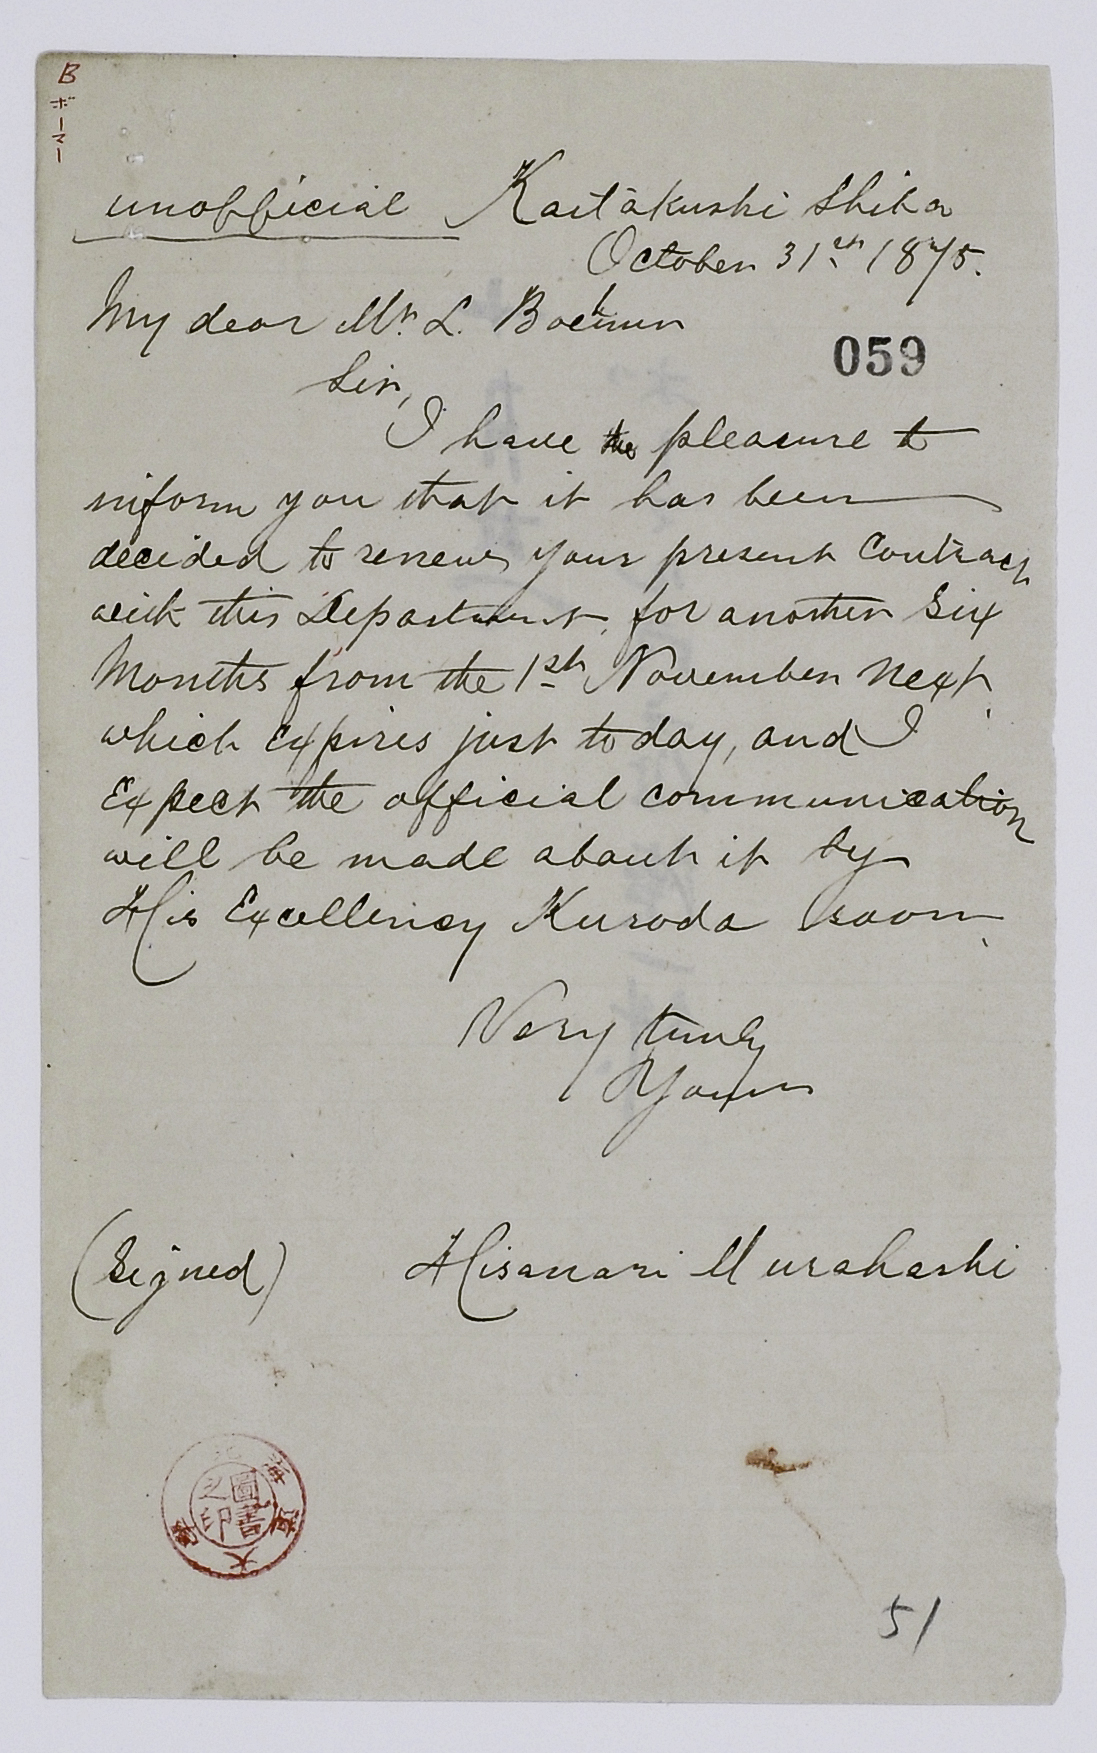 B
ボーマー
unofficial Kaitakushi Shiba
October 31st 1875.
My dear Mr. L. Boehmer
059
Sir,
I have the pleasure to
inform you that it has been
decided to renew your present Contract
with this Department, for another Six
Months from the 1st November next,
which expires just to day, and I
Expect the official communication
will be made about it by
His Excellency Kuroda soon.
Very truly
Yours
(Signed) Hisanari Murahashi
北海道大學
圖書之印
51